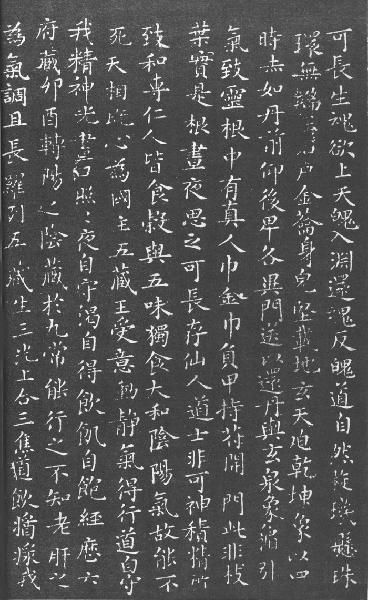 可長生魂欲上天魄入淵還魂反魄道自然旋璣懸珠
環無端戶金籥身兒堅載地玄天迴乾坤象以四
時赤如丹前仰後卑各異門送以還丹與玄泉象引
氣致靈根中有真人巾金巾負甲持符開門此非枝
葉實是根晝夜思之可長存仙人道士非可神積精所
致和專仁人皆食穀與五味獨食大和陰陽氣故能不
死天相既心為國主五藏王受意動靜氣得行道自守
我精神光晝日照〻夜自守渴自得飲飢自飽經歷六
府藏卯酉轉陽之陰藏於九常能行之不知老肝之
為氣調且長羅列五藏生三光上合三焦道飲醬漿我